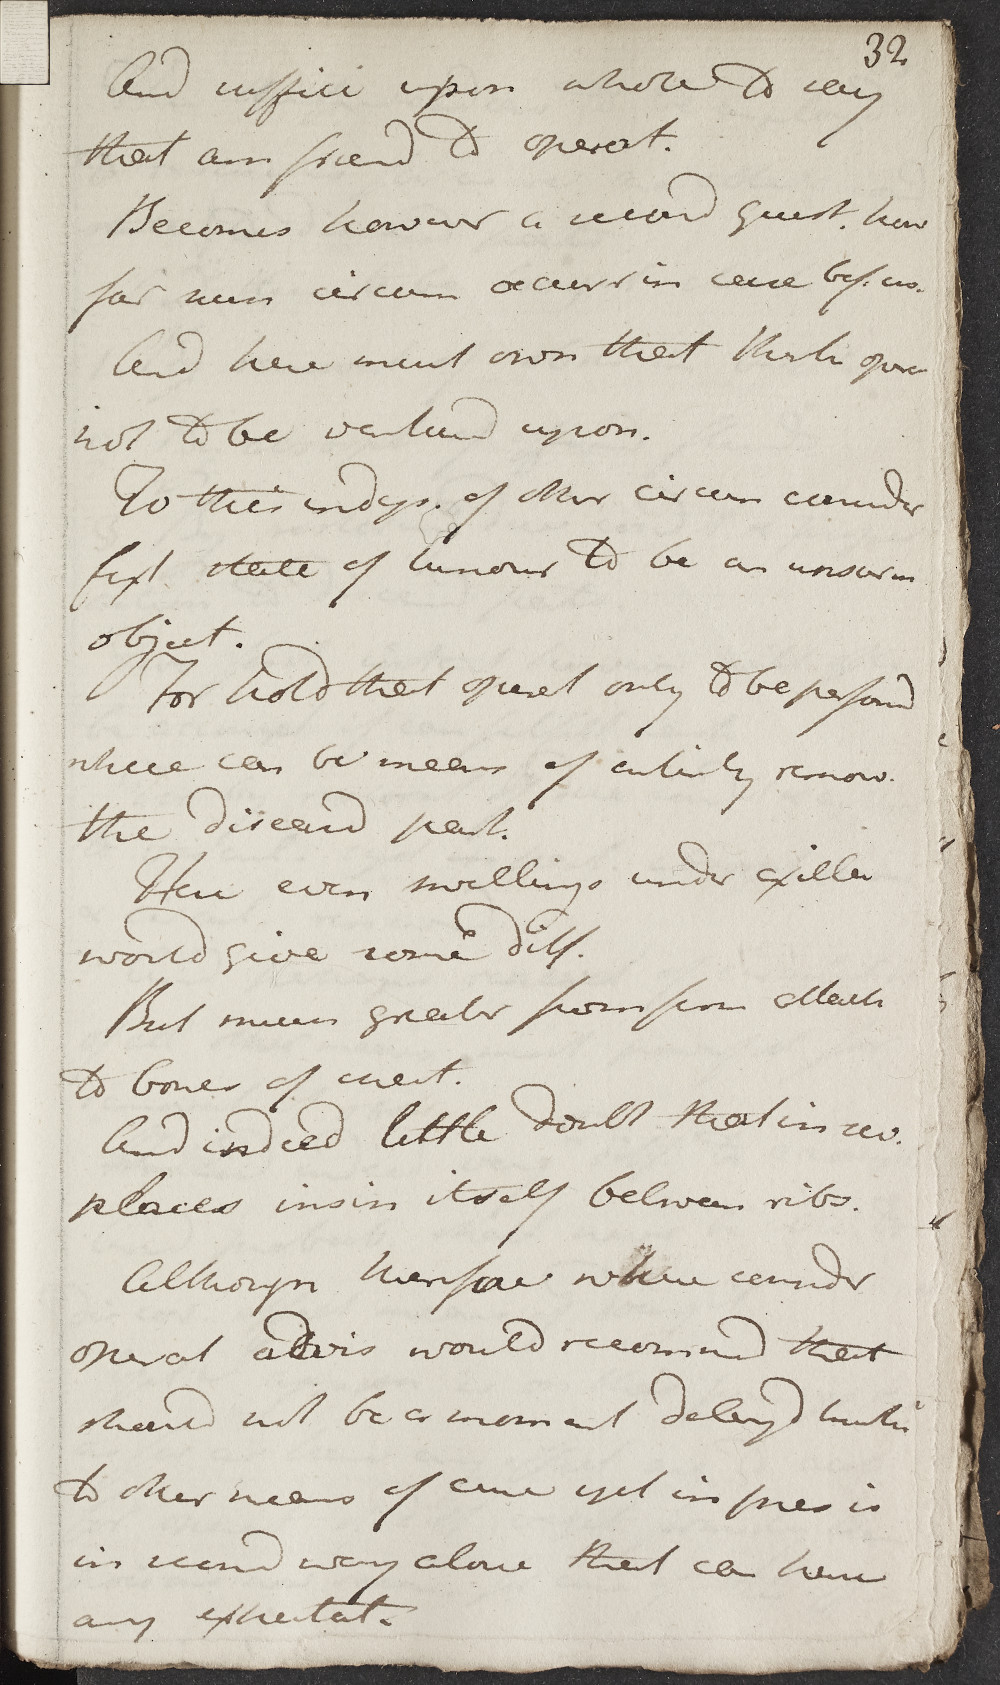 32
And suffice upon whole to say
that am friend to operat.
Becomes however a second quest. how
far such circum occurr in case bef. us.
And here must own that think opera
not to be ventured upon.
To this indep. of other circum consider
fixt state of tumour to be an unsurm
object.
For hold that operat only to be perform'd
where can be means of entirely remov.
the diseased part.
Here even swellings under axilla
would give some diff.
But much greater from firm attach
to bones of chest.
And indeed little doubt that in sev.
places insin itself between ribs.
Although therefore where consider
operat advis would recommend that
should not be a moment delay'd
to other means of cure yet in pres is
in second way alone that can have
any expectat.